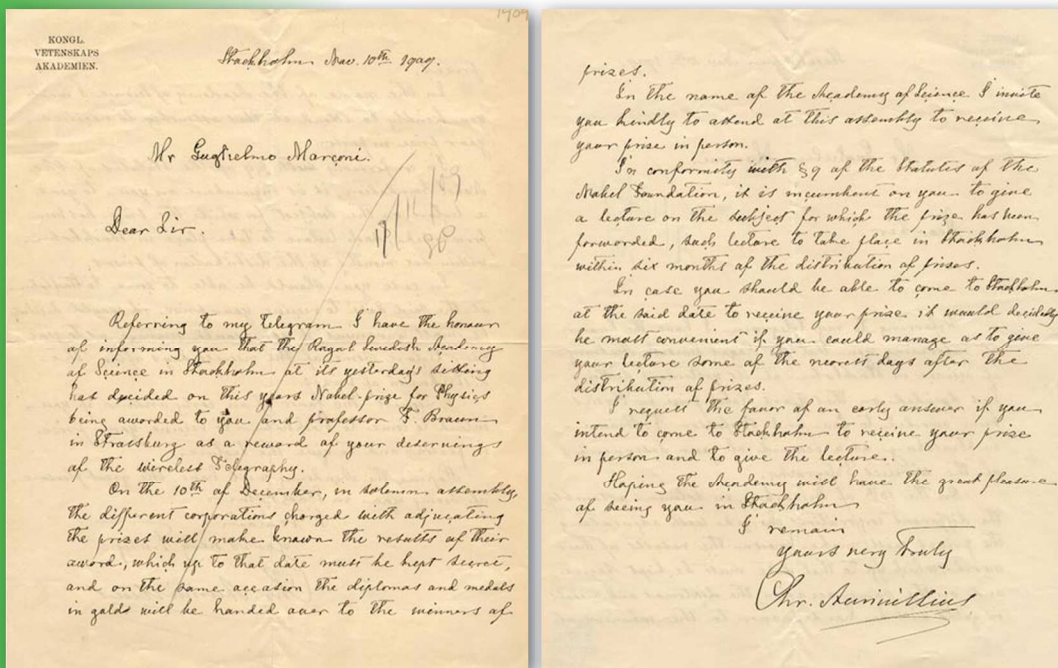 1909
KONGL.
VETENSKAPS
AKADEMIEN.
Stockholm Nov. 10th 1909.
Mr Guglielmo Marconi.
Dear Sir.
Referring to my telegram I have the honour
of informing you that the Royal Swedish Academy
of Science in Stockholm at its yesterday's sitting
has decided on this years Nobel-prize for Physics
being awarded to you and professor F. Braun
in Strassburg as a reward of your deservings
of the wireless Telegraphy.
On the 10th of December, in solemn assembly,
the different corporations charged with adjucating
the prizes will make known the results of their
award, which up to that date must be kept secret,
and on the same occasion the diplomas and medals
in gold will be handed over to the winners of
prizes.
In the name of the Academy of Science I invite
you kindly to attend at this assembly to receive
your prize in person.
In conformity with § 9 of the Statutes of the
Nobel Foundation, it is incumbent on you to give
a lecture on the subject for which the prize has been
forwarded, such lecture to take place in Stockholm
within six months of the distribution of prizes.
In case you should be able to come to Stockholm
at the said date to receive your prize it would decidedly
be most convenient if you could manage as to give
your lecture some of the nearest days after the
distribution of prizes.
I request the favor of an early answer if you
intend to come to Stockholm to receive your prize
in person and to give the lecture.
Hoping the Academy will have the great pleasure
of seeing you in Stockholm
I remain
yours very truly
Chr. Aurivillius